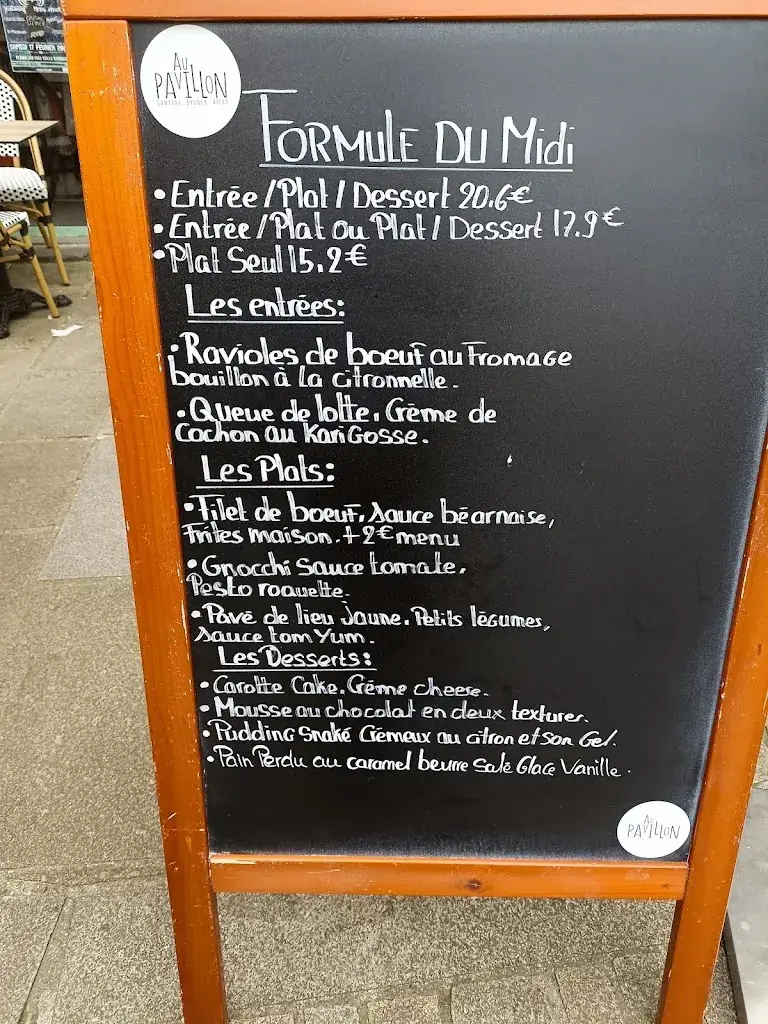 SAMEDI 17 FÉVRIER
AU
PAVILLON
FORMULE DU Midi
• Entrée / Plat / Dessert 20.6€
• Entrée / Plat ou Plat / Dessert 17.9€
• Plat Seul 15.2€
Les entrées:
• Ravioles de boeuf au Fromage
bouillon à la citronnelle.
• Queue de lotte, Crème de
Cochon au Kari Gosse.
Les Plats:
• Filet de boeuf, sauce béarnaise,
frites maison. + 2€ menu
• Gnocchi sauce tomate,
Pesto roquette.
• Pavé de lieu Jaune. Petits légumes,
sauce tom Yum.
Les Desserts:
• Carotte Cake. Crème cheese.
• Mousse au chocolat en deux textures.
• Pudding snaké Crémeux au citron et son Gel.
• Pain Perdu au caramel beurre salé Glace Vanille.
AU
PAVILLON